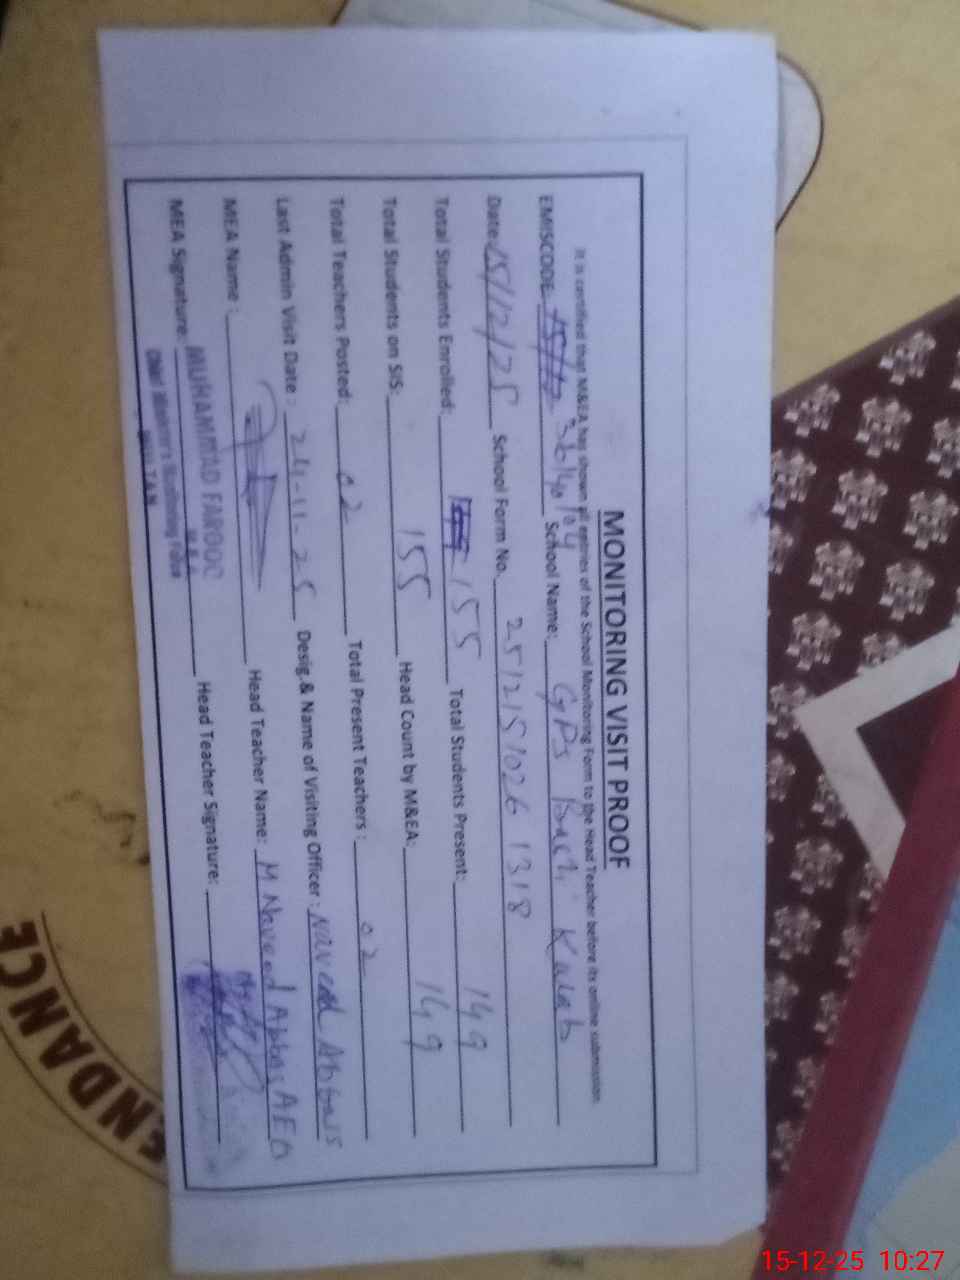 MONITORING VISIT PROOF
It is certified that M&EA has shown all entries of the School Monitoring Form to the Head Teacher before its online submission.
EMISCODE: School Name: GPS Kalab
Date: 15/12/25 School Form No. 2512151026 1318
Total Students Enrolled: 155 Total Students Present: 149
Total Students on SIS: 155 Head Count by M&EA: 149
Total Teachers Posted: 02 Total Present Teachers: 02
Last Admin Visit Date: 24-11-25 Desig.& Name of Visiting Officer: Naveed Abbas
MEA Name: Head Teacher Name: M Naveed Abbas AEO
MEA Signature: MUHAMMAD FAROOQ Head Teacher Signature:
M.E.A
MULTAN
ENDANCE
15-12-25 10:27